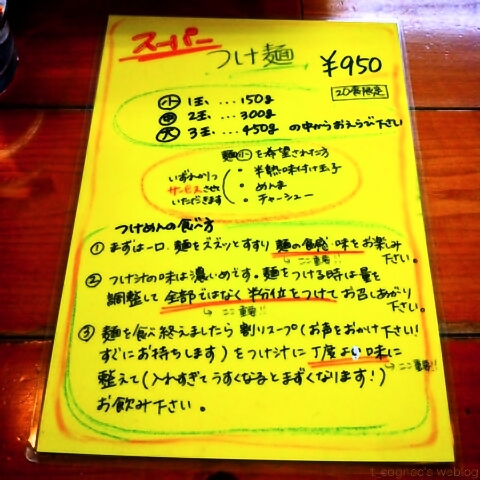 スーパー
つけ麺 ¥950
20食限定
小 1玉 ... 150g
中 2玉 ... 300g
大 3玉 ... 450g の中からおえらび下さい
麺小を希望された方
いずれか1つ
サービスさせて
いただきます
・半熟味付け玉子
・めんま
・チャーシュー
つけめんの食べ方
① まずは一口、麺をズズッとすすり 麺の食感、味をお楽しみ
下さい。
ここ重要!!
② つけ汁の味は濃いめです。麺をつける時は量を
調整して全部ではなく半分位をつけてお召しあがり
下さい。
ここ重要!!
③ 麺を食べ終えましたら割りスープ(お声をおかけ下さい!
すぐにお持ちします)をつけ汁に丁度よい味に
ここ重要!!
整えて(入れすぎてうすくなるとまずくなります!)
お飲み下さい。
t_cognac's weblog